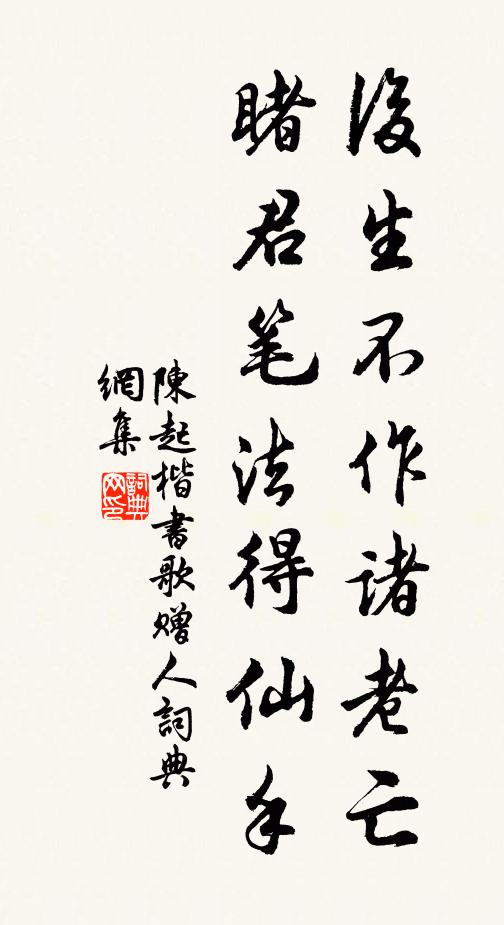 後生不作諸老亡
睹君笔法得仙手
陳起楷書歌赠人詞典
網集
詞典
网印